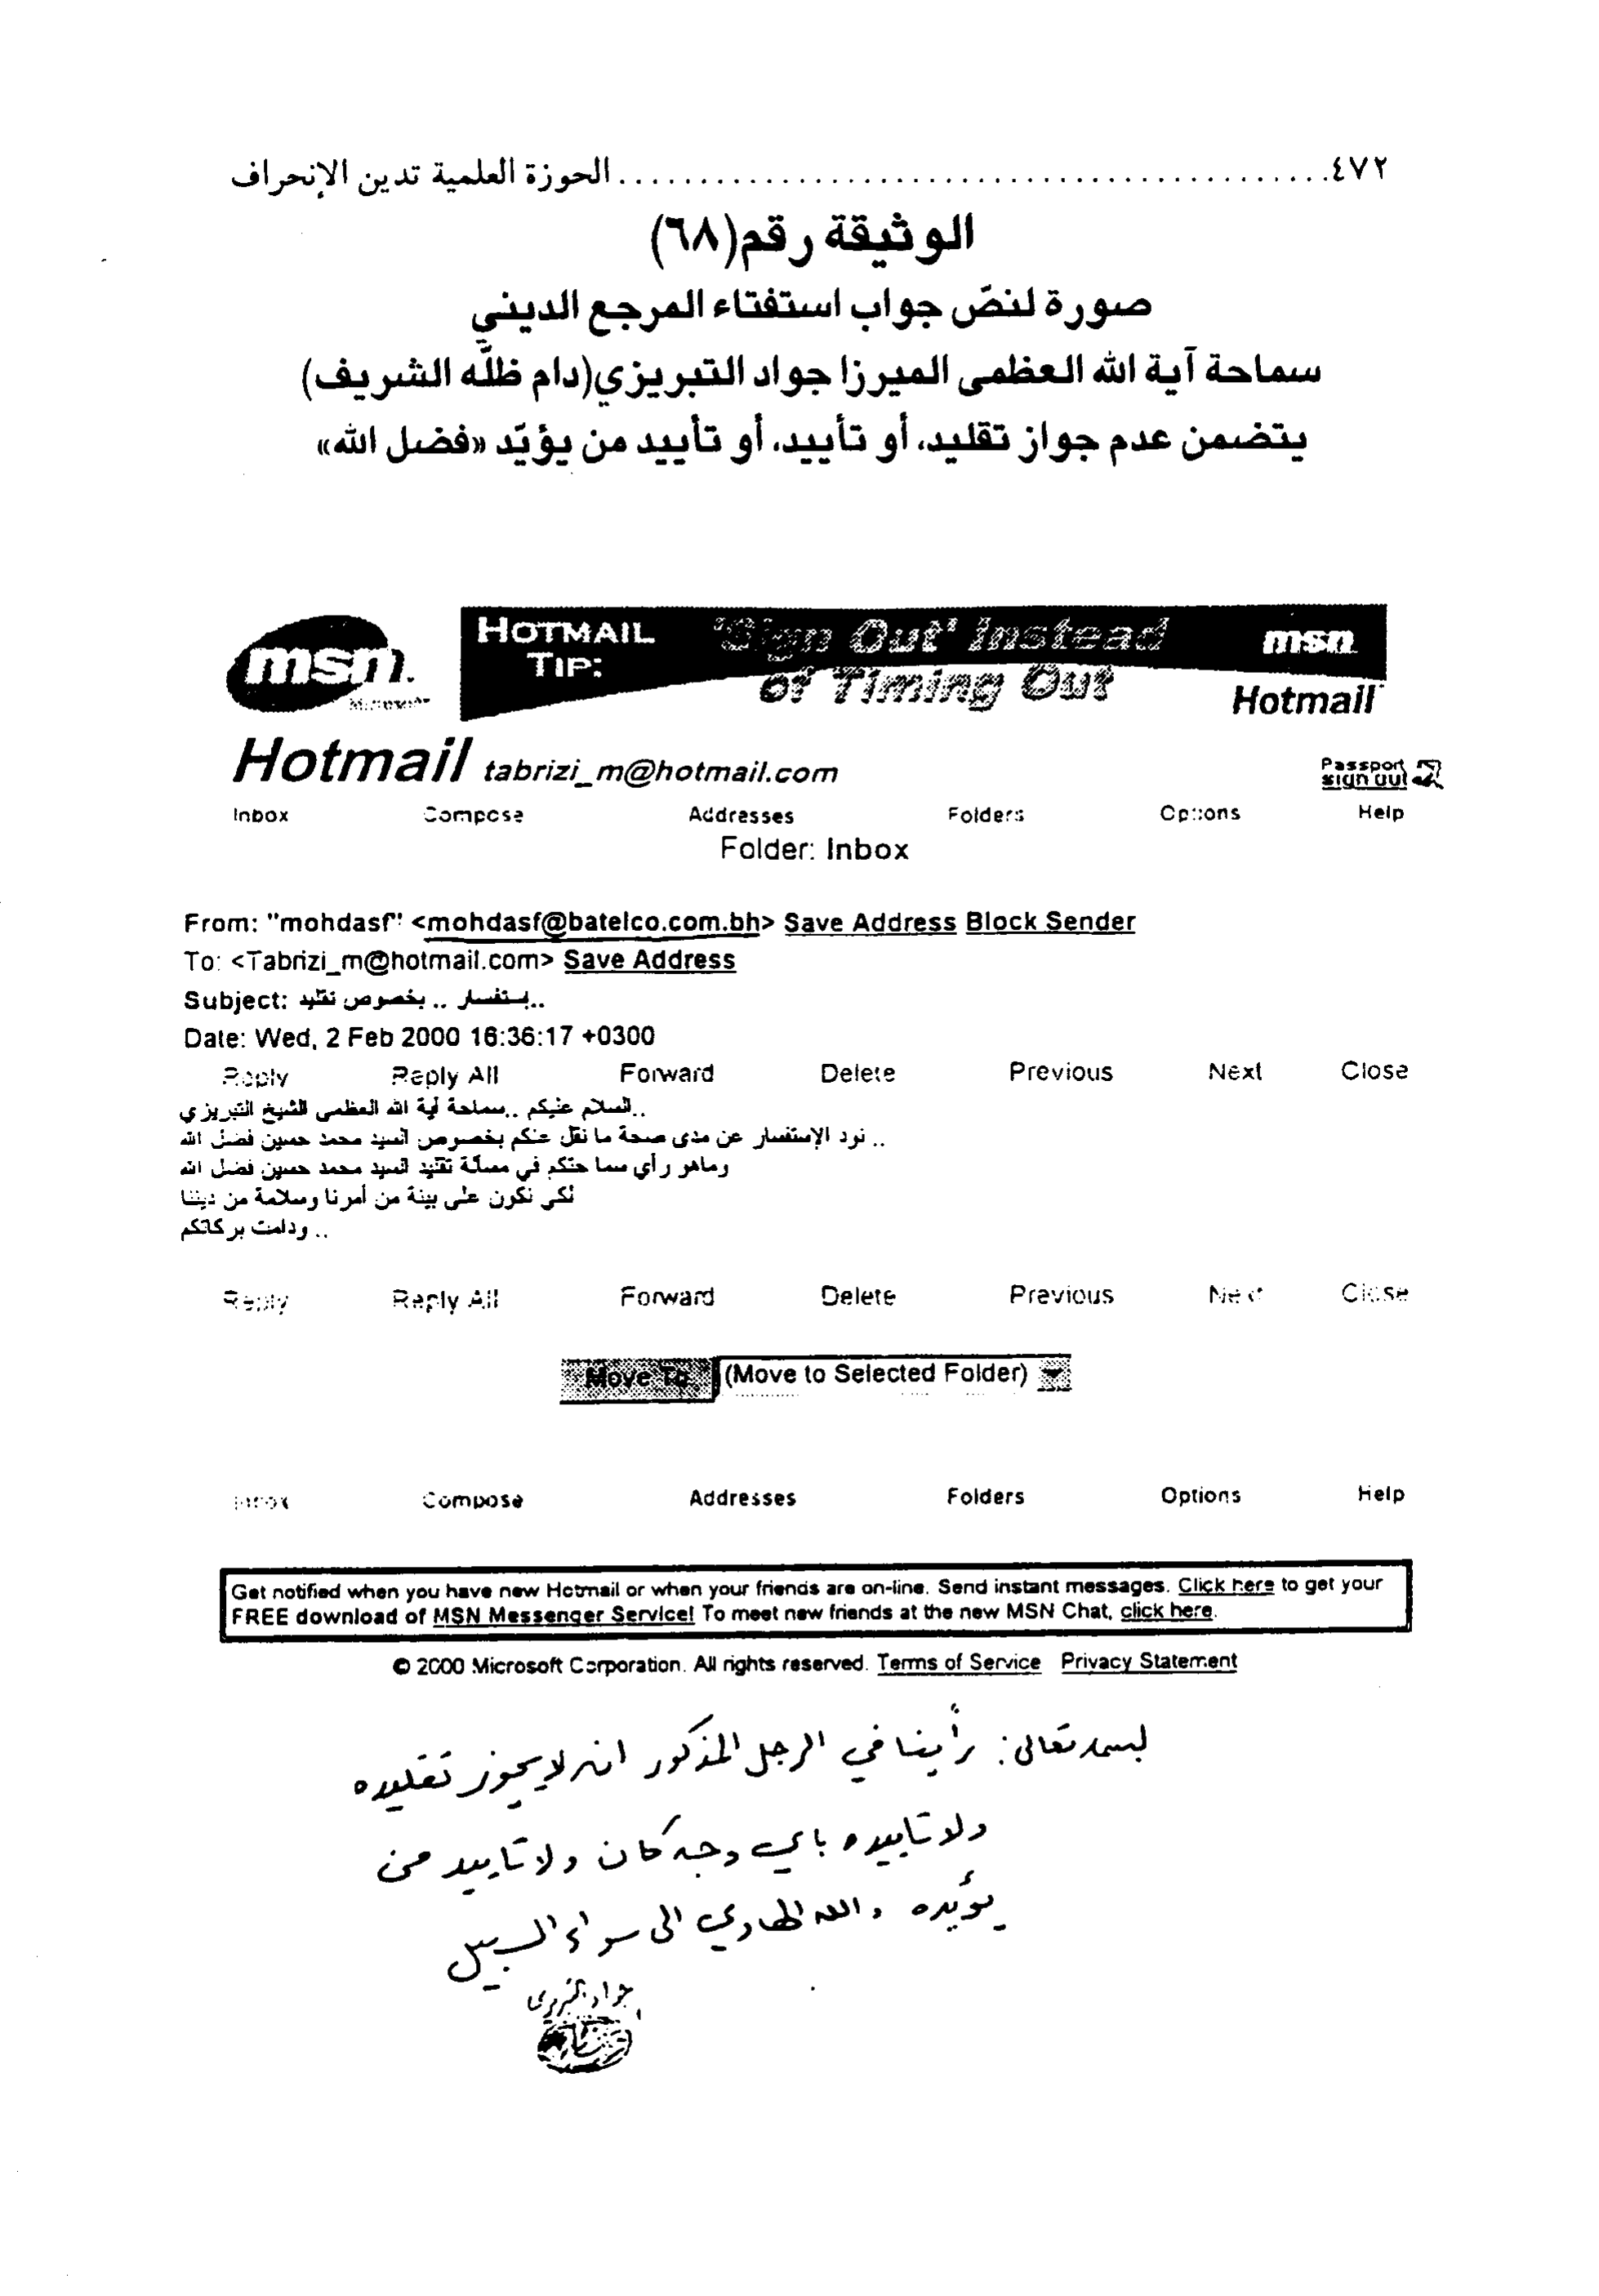 ٤٧٢............................................الحوزة العلمية تدين الإنحراف
الوثيقة رقم(٦٨)
صورة لنصّ جواب استفتاء المرجع الديني
سماحة آية الله العظمى الميرزا جواد التبريزي(دام ظلّه الشريف)
يتضمن عدم جواز تقليد، أو تأييد، أو تأييد من يؤيّد «فضل الله»
msn.
Microsoft
HOTMAIL TIP:
'Sign Out' Instead of Timing Out
msn
Hotmail
Hotmail tabrizi_m@hotmail.com
Passport sign out
Inbox Compose Addresses Folders Options Help
Folder: Inbox
From: "mohdasf" <mohdasf@batelco.com.bh> Save Address Block Sender
To: <Tabrizi_m@hotmail.com> Save Address
Subject: إستفسار .. بخصوص تقليد..
Date: Wed, 2 Feb 2000 16:36:17 +0300
Reply Reply All Forward Delete Previous Next Close
..السلام عليكم ..سماحة آية الله العظمى الشيخ التبريزي
.. نود الإستفسار عن مدى صحة ما نقل عنكم بخصوص السيد محمد حسين فضل الله
وماهو رأي سماحتكم في مسألة تقليد السيد محمد حسين فضل الله
لكي نكون على بينة من أمرنا وسلامة من ديننا
.. ودامت بركاتكم
Reply Reply All Forward Delete Previous Next Close
Move To (Move to Selected Folder)
Inbox Compose Addresses Folders Options Help
Get notified when you have new Hotmail or when your friends are on-line. Send instant messages. Click here to get your
FREE download of MSN Messenger Service! To meet new friends at the new MSN Chat, click here.
© 2000 Microsoft Corporation. All rights reserved. Terms of Service Privacy Statement
بسمه تعالى: رأينا في الرجل المذكور انه لا يجوز تقليده
ولا تاييده باي وجه كان ولا تاييد من
يؤيده والله الهادي الى سواء السبيل
جواد التبريزي